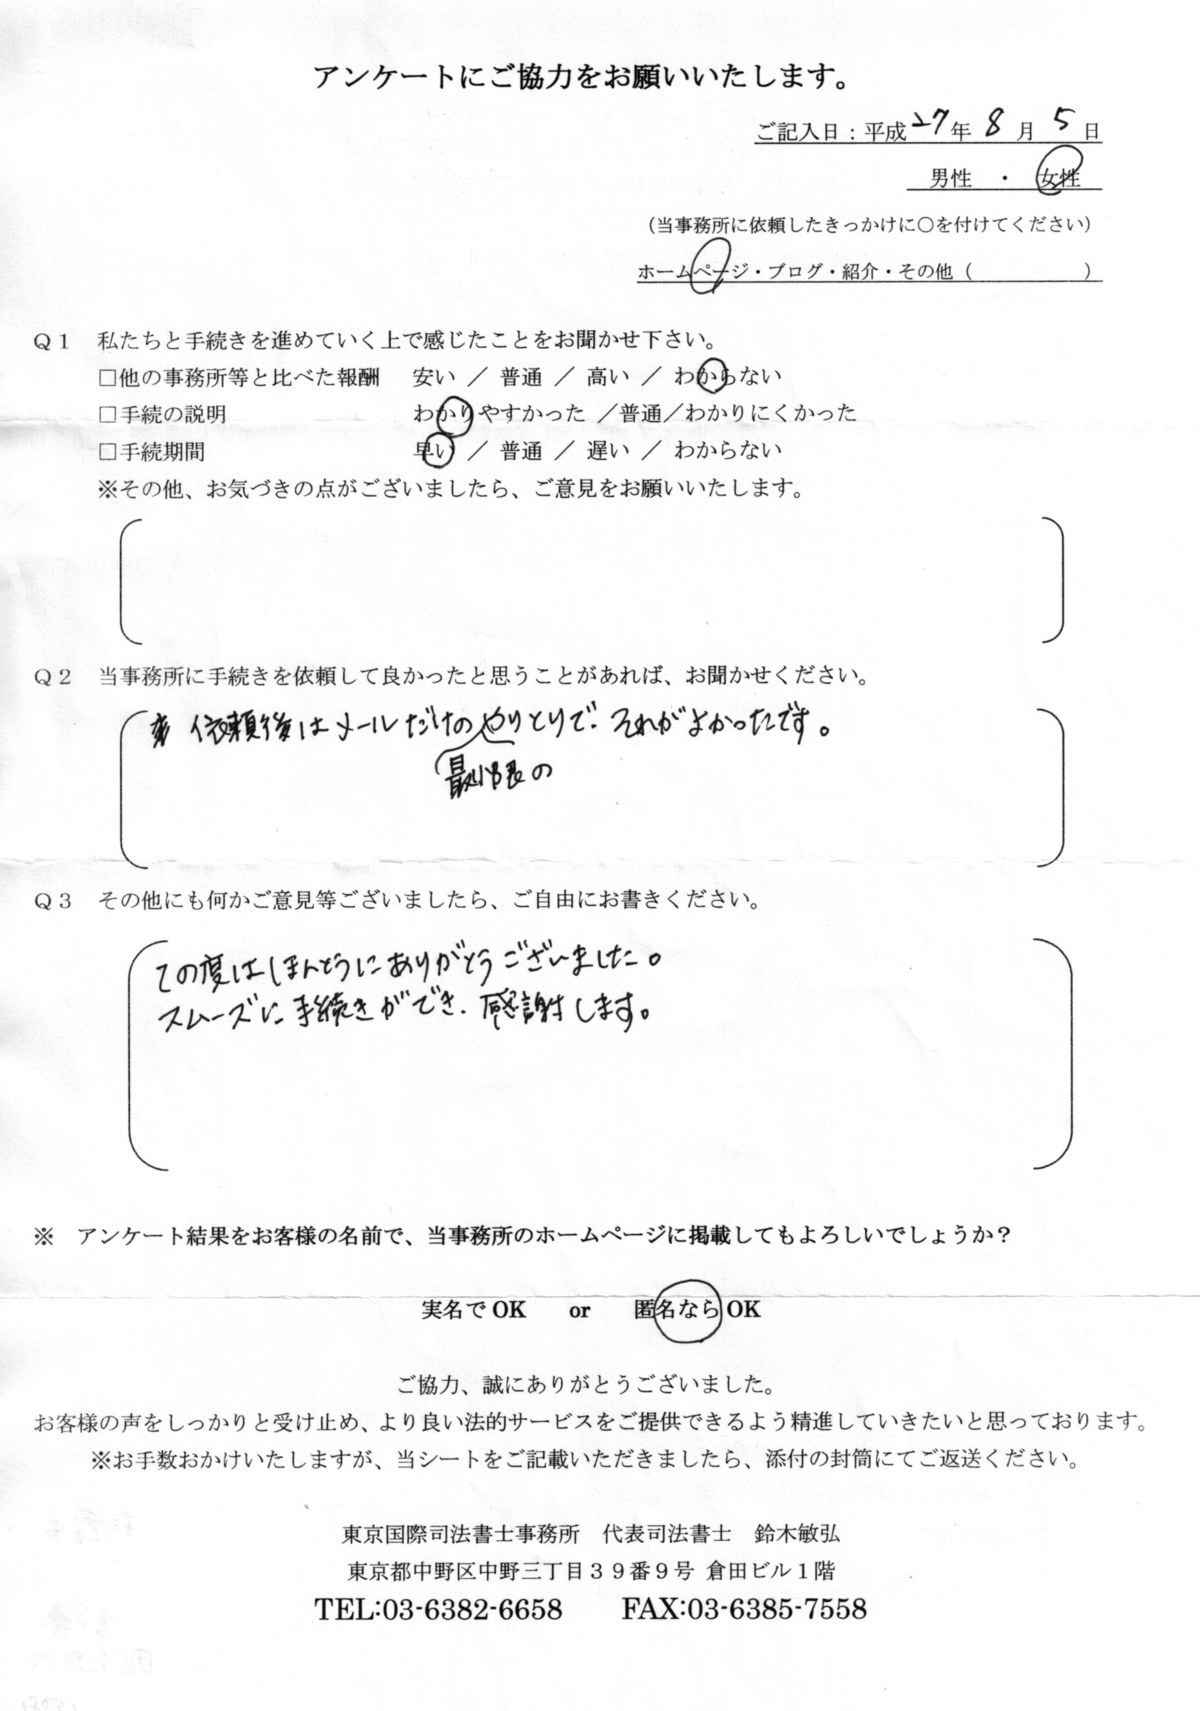 アンケートにご協力をお願いいたします。
ご記入日：平成27年 8月 5日
男性 ・ 女性
（当事務所に依頼したきっかけに○を付けてください）
ホームページ・ブログ・紹介・その他（　　　　　）
Q1 私たちと手続きを進めていく上で感じたことをお聞かせ下さい。
□他の事務所等と比べた報酬 安い ／ 普通 ／ 高い ／ わからない
□手続の説明 わかりやすかった ／普通／わかりにくかった
□手続期間 早い ／ 普通 ／ 遅い ／ わからない
※その他、お気づきの点がございましたら、ご意見をお願いいたします。
Q2 当事務所に手続きを依頼して良かったと思うことがあれば、お聞かせください。
依頼後はメールだけのやりとりで、それがよかったです。
最小限の
Q3 その他にも何かご意見等ございましたら、ご自由にお書きください。
この度はほんとうにありがとうございました。
スムーズに手続きができ、感謝します。
※ アンケート結果をお客様の名前で、当事務所のホームページに掲載してもよろしいでしょうか？
実名でOK or 匿名ならOK
ご協力、誠にありがとうございました。
お客様の声をしっかりと受け止め、より良い法的サービスをご提供できるよう精進していきたいと思っております。
※お手数おかけいたしますが、当シートをご記載いただきましたら、添付の封筒にてご返送ください。
東京国際司法書士事務所 代表司法書士 鈴木敏弘
東京都中野区中野三丁目３９番９号 倉田ビル１階
TEL:03-6382-6658 FAX:03-6385-7558